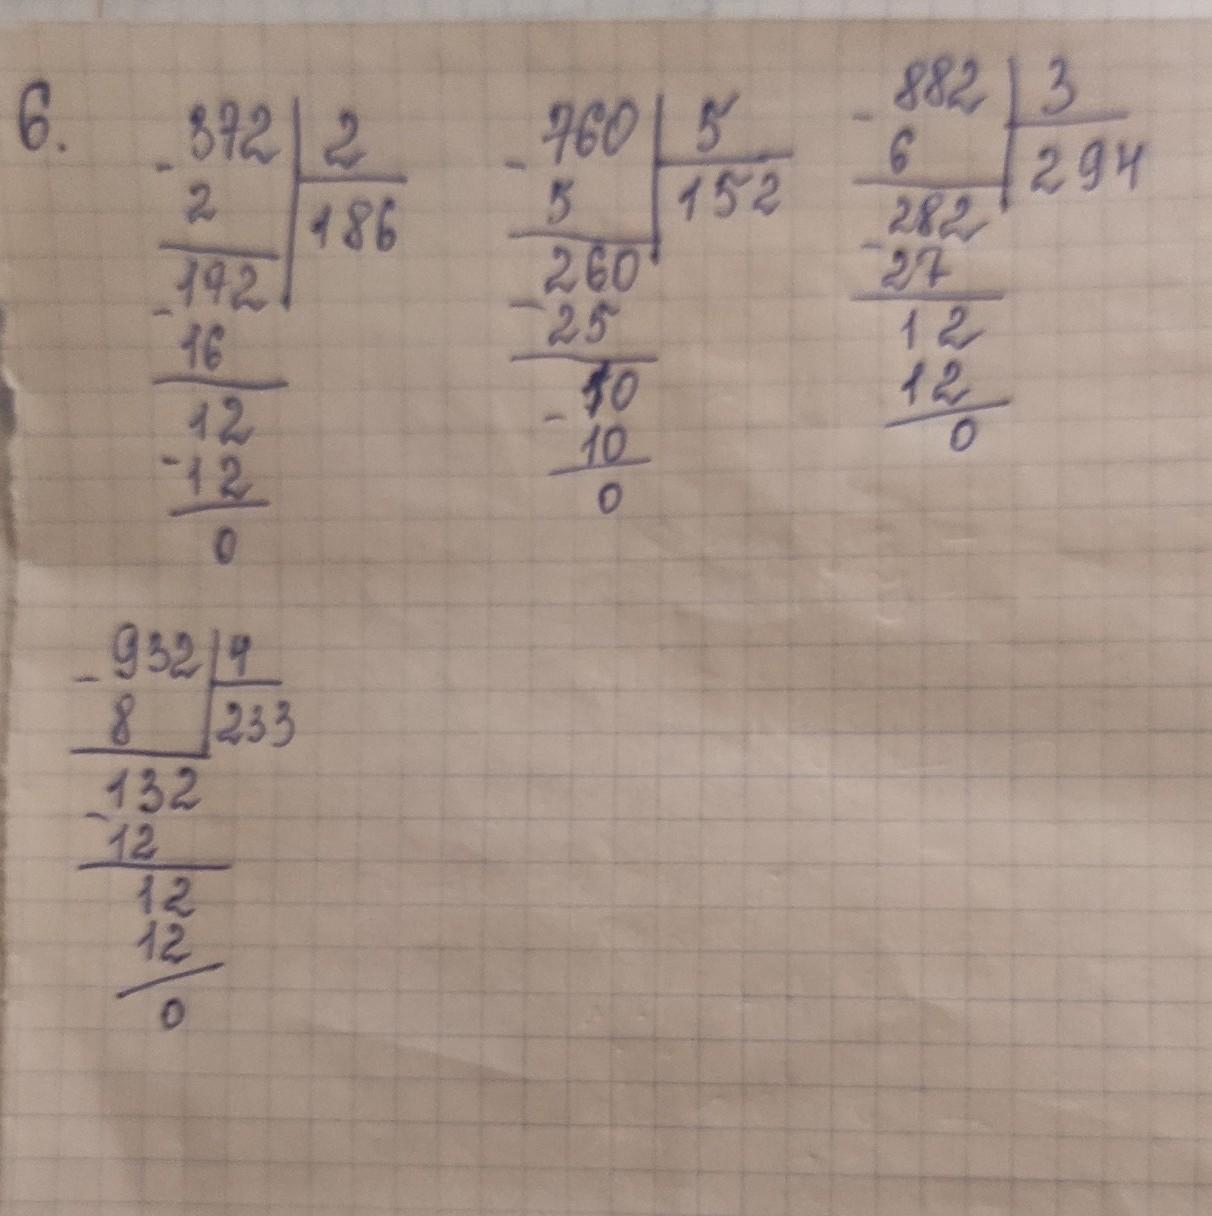 6.
- 372 | 2
2 | 186
- 172
16
12
- 12
0
- 760 | 5
5 | 152
- 260
25
- 10
10
0
- 882 | 3
6 | 294
- 282
27
12
12
0
- 932 | 4
8 | 233
- 132
12
12
12
0